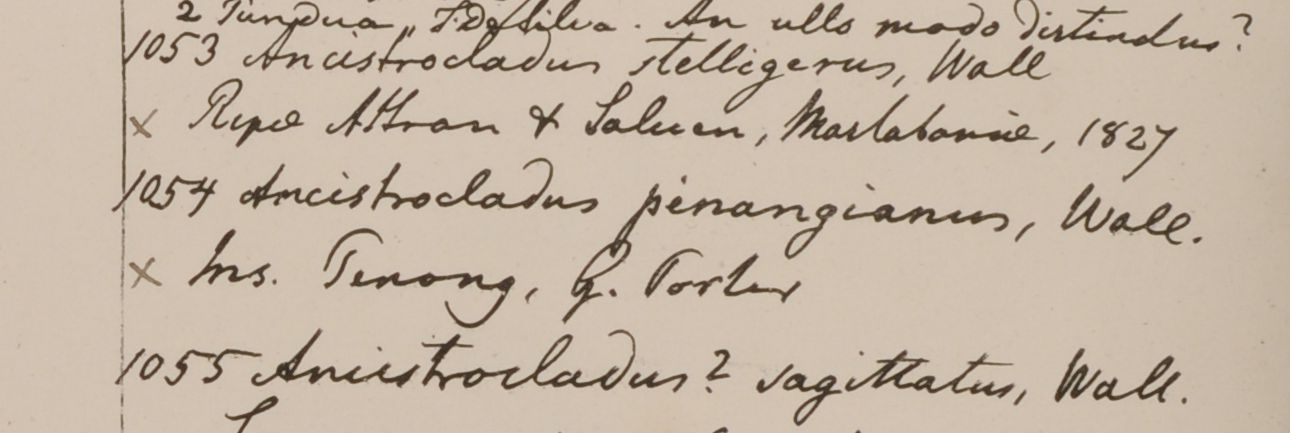 2 Pundua „ F. De Silva. An ullo modo distinctus?
1053 Ancistrocladus stelligerus, Wall
x Ripæ Attran & Saluen, Martabaniæ, 1827
1054 Ancistrocladus pinangianus, Wall.
x Ins. Penang, G. Porter
1055 Ancistrocladus? sagittatus, Wall.